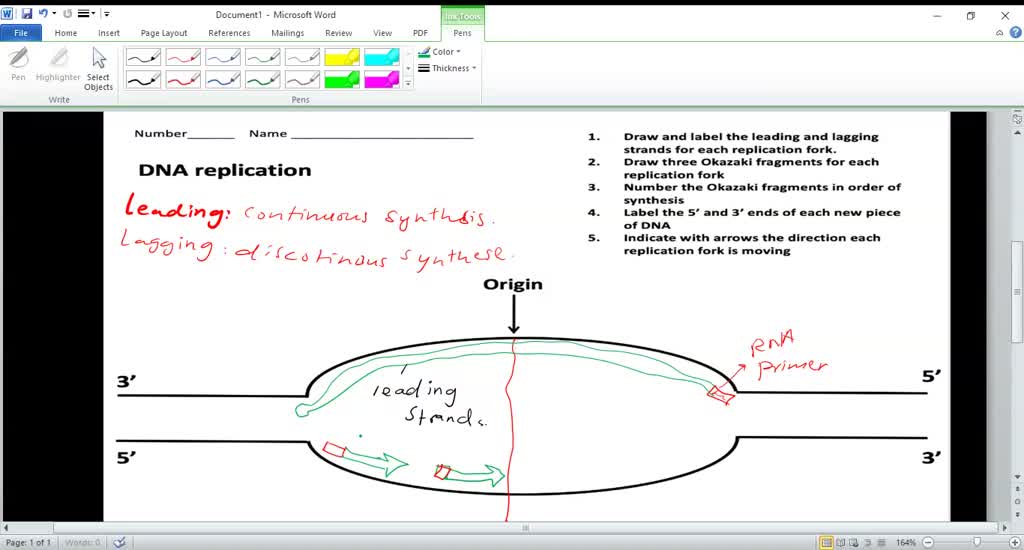 Document1 - Microsoft Word
Ink Tools
File Home Insert Page Layout References Mailings Review View PDF Pens
Pen Highlighter Select Objects
Color
Thickness
Write
Pens
Number______ Name ______
DNA replication
1. Draw and label the leading and lagging
strands for each replication fork.
2. Draw three Okazaki fragments for each
replication fork
3. Number the Okazaki fragments in order of
synthesis
4. Label the 5’ and 3’ ends of each new piece
of DNA
5. Indicate with arrows the direction each
replication fork is moving
Leading: continuous synthesis.
Lagging: discotinous synthese.
Origin
RNA
primer
3’
5’
leading
strands.
5’
3’
Page: 1 of 1 Words: 0 164%